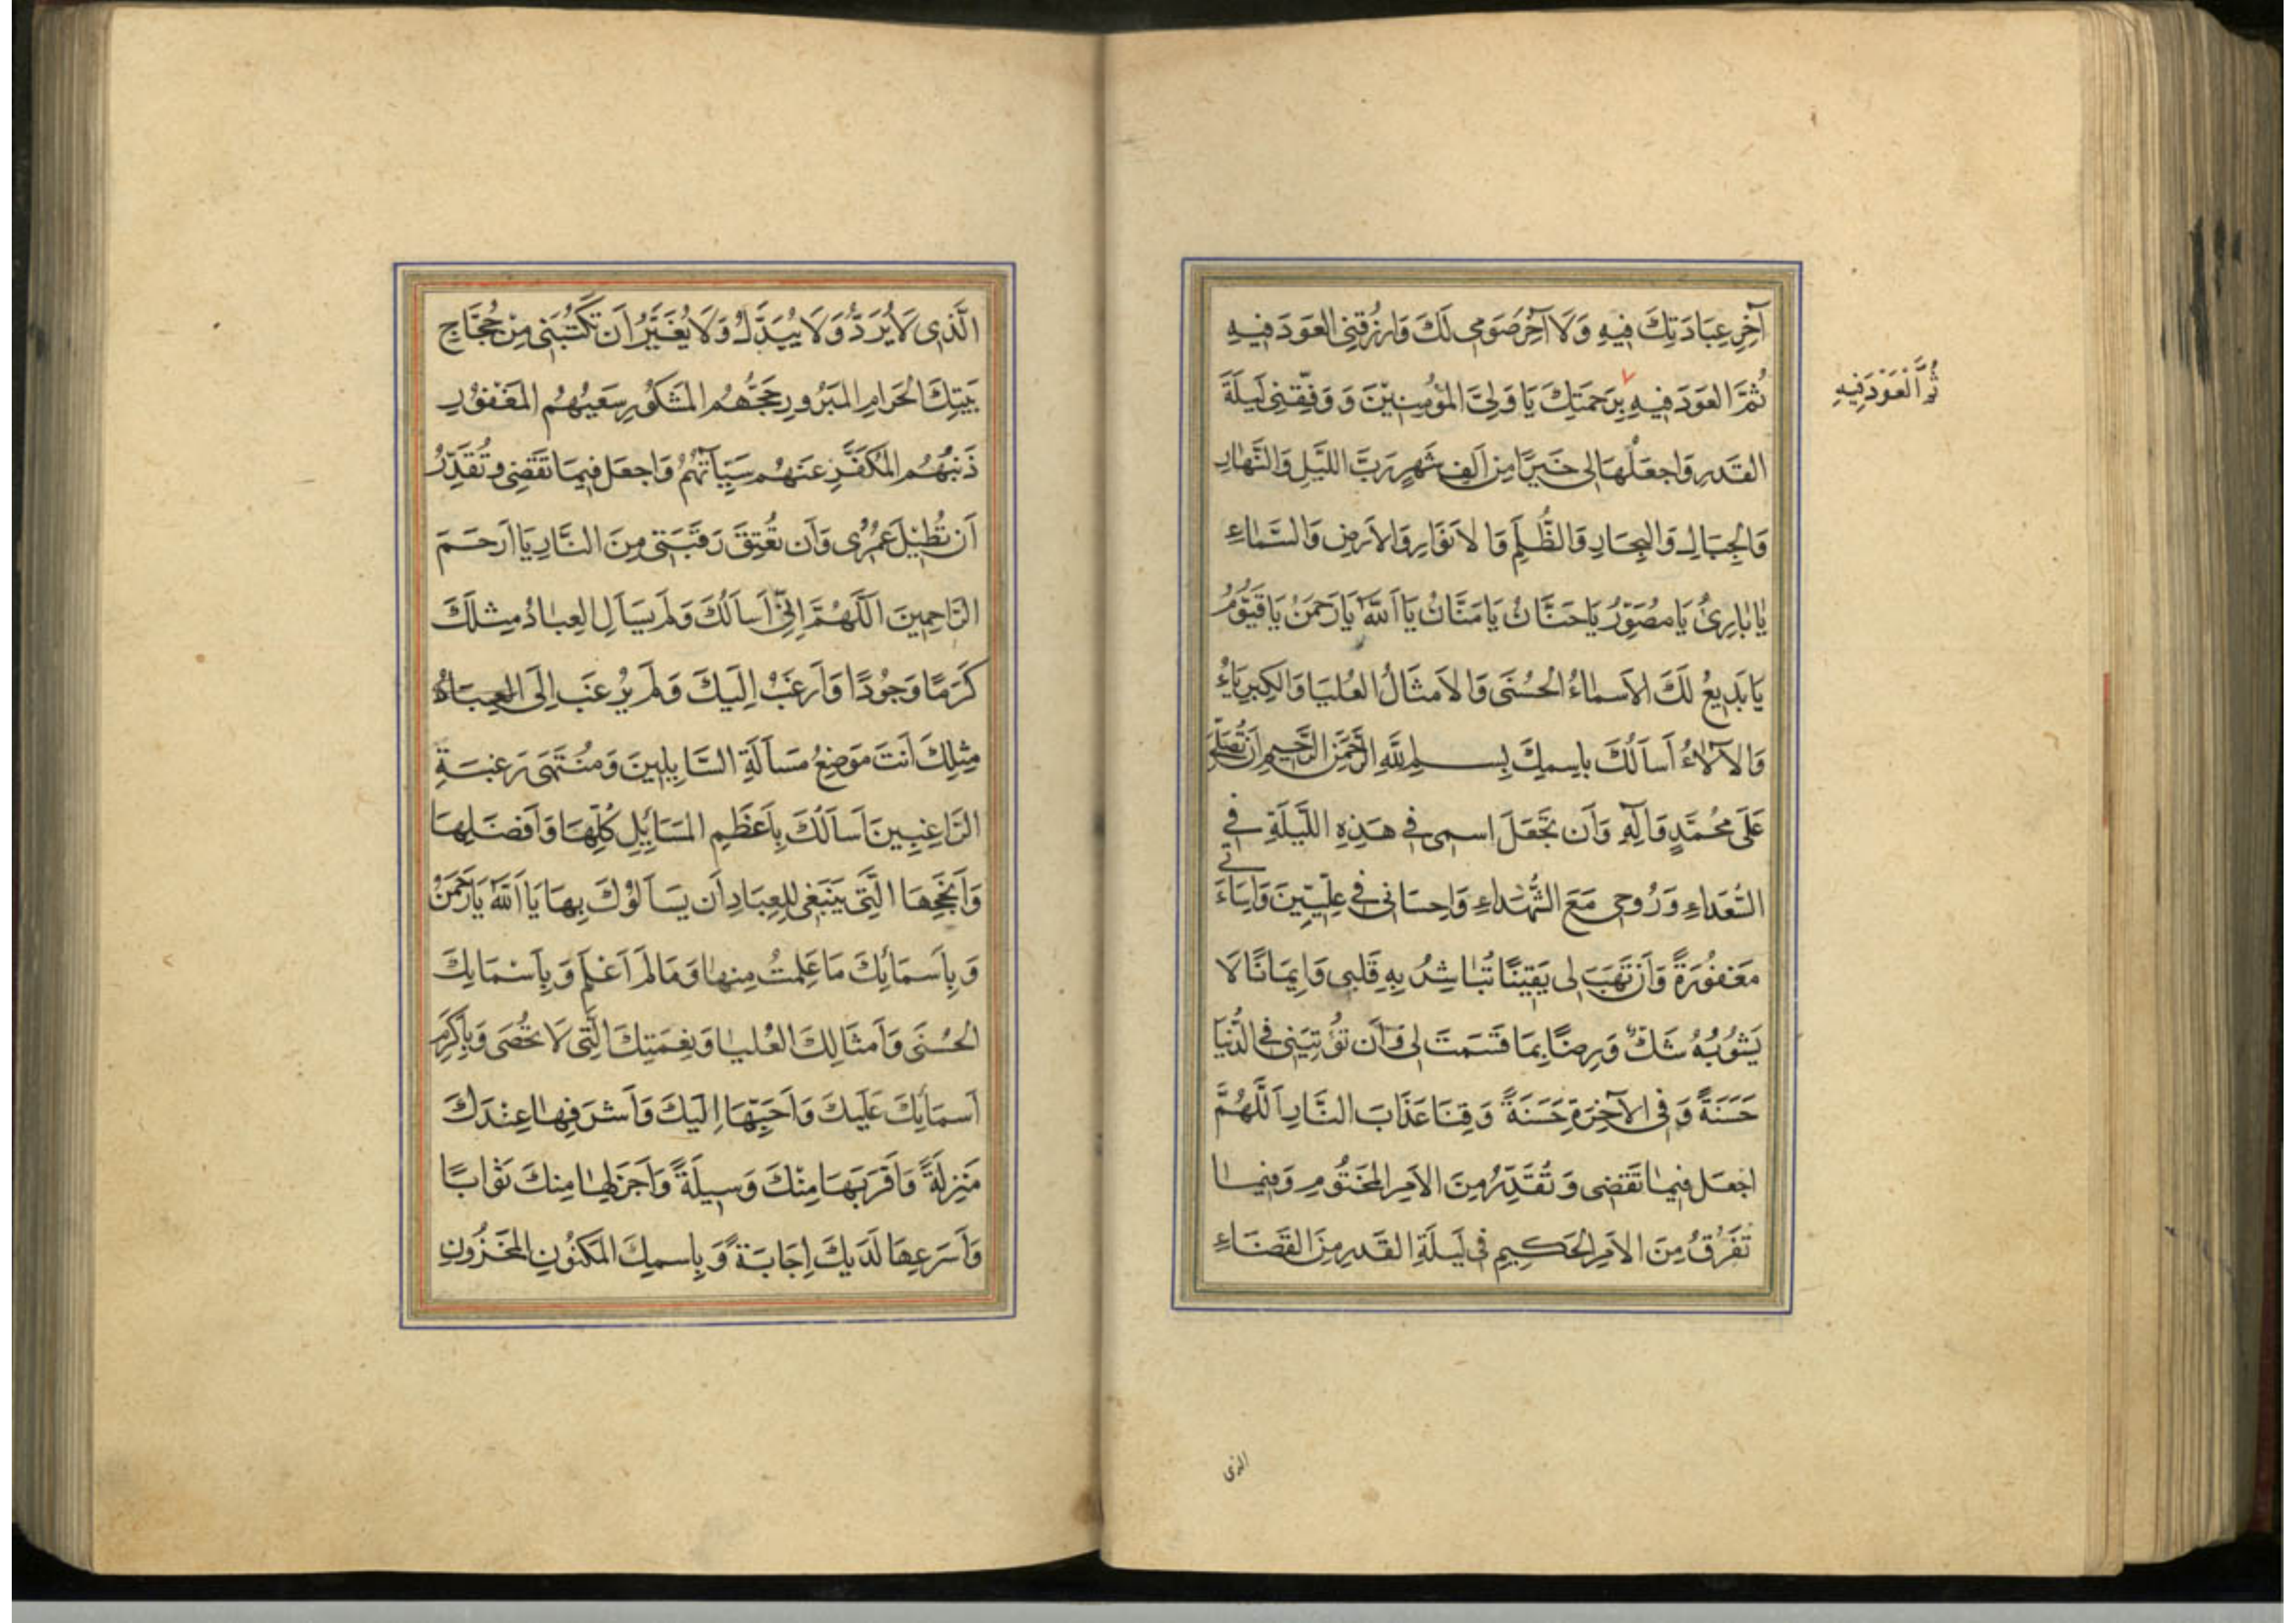 آخِرَ عِبَادَتِكَ فِيهِ وَلَا آخِرَ صَوْمِي لَكَ وَارْزُقْنِي العَوْدَ فِيهِ
ثُمَّ العَوْدَ فِيهِ بِرَحْمَتِكَ يَا وَلِيَّ المُؤْمِنِيْنَ وَوَفِّقْنِي لَيْلَةَ
ثُمَّ الْعَوْدَ فِيهِ
القَدْرِ وَاجْعَلْهَا لِي خَيْرًا مِنْ اَلْفِ شَهْرٍ رَبَّ اللَّيْلِ وَالنَّهَارِ
وَالجِبَالِ وَالبِحَارِ وَالظُّلَمِ وَالاَنْوَارِ وَالاَرْضِ وَالسَّمَاءِ
يَا بَارِئُ يَا مُصَوِّرُ يَا حَنَّانُ يَا مَنَّانُ يَا اَللّٰهُ يَا رَحْمَنُ يَا قَيُّوْمُ
يَا بَدِيعُ لَكَ الاَسْمَاءُ الحُسْنَى وَالاَمْثَالُ العُلْيَا وَالكِبْرِيَاءُ
وَالآلَاءُ أَسْأَلُكَ بِاسْمِكَ بِسْمِ اللّٰهِ الرَّحْمَنِ الرَّحِيمِ اَنْ تُصَلِّيَ
عَلَى مُحَمَّدٍ وَآلِهِ وَاَنْ تَجْعَلَ اسْمِي فِي هَذِهِ اللَّيْلَةِ فِي
السُّعَدَاءِ وَرُوحِي مَعَ الشُّهَدَاءِ وَاِحْسَانِي فِي عِلِّيِّينَ وَاِسَاءَتِي
مَغْفُورَةً وَاَنْ تَهَبَ لِي يَقِيْنًا تُبَاشِرُ بِهِ قَلْبِي وَاِيمَانًا لَا
يَشُوبُهُ شَكٌّ وَرِضًا بِمَا قَسَمْتَ لِي وَاَنْ تُؤْتِيَنِي فِي الدُّنْيَا
حَسَنَةً وَفِي الآخِرَةِ حَسَنَةً وَقِنَا عَذَابَ النَّارِ اَللَّهُمَّ
اجْعَلْ فِيمَا تَقْضِي وَتُقَدِّرُ مِنَ الاَمْرِ المَحْتُومِ وَفِيمَا
تَفْرُقُ مِنَ الاَمْرِ الحَكِيمِ فِي لَيْلَةِ القَدْرِ مِنَ القَضَاءِ
الذى
الَّذِي لَا يُرَدُّ وَلَا يُبَدَّلُ وَلَا يُغَيَّرُ اَنْ تَكْتُبَنِي مِنْ حُجَّاجِ
بَيْتِكَ الحَرَامِ المَبْرُورِ حَجُّهُم المَشْكُورِ سَعْيُهُم المَغْفُورِ
ذَنْبُهُم المُكَفَّرِ عَنْهُمْ سَيِّآتُهُمْ وَاجْعَلْ فِيمَا تَقْضِي وَتُقَدِّرُ
اَنْ تُطِيْلَ عُمُرِي وَاَنْ تُعْتِقَ رَقَبَتِي مِنَ النَّارِ يَا اَرْحَمَ
الرَّاحِمِينَ اَللَّهُمَّ اِنِّي اَسْاَلُكَ وَلَمْ يَسْاَلِ العِبَادُ مِثْلَكَ
كَرَمًا وَجُودًا وَاَرْغَبُ اِلَيْكَ وَلَمْ يُرْغَبْ اِلَى العِبَادُ
مِثْلِكَ اَنْتَ مَوْضِعُ مَسْاَلَةِ السَّايِلِينَ وَمُنْتَهَى رَغْبَةِ
الرَّاغِبِينَ اَسْاَلُكَ بِاَعْظَمِ المَسَايِلِ كُلِّهَا وَاَفْضَلِهَا
وَاَنْجَحِهَا الَّتِي يَنْبَغِي لِلعِبَادِ اَنْ يَسْاَلُوْكَ بِهَا يَا اَللّٰهُ يَا رَحْمَنُ
وَبِاَسْمَائِكَ مَا عَلِمْتُ مِنْهَا وَمَا لَمْ اَعْلَمْ وَبِاَسْمَايِكَ
الحُسْنَى وَاَمْثَالِكَ العُلْيَا وَبِنِعْمَتِكَ الَّتِي لَا تُحْصَى وَبِاَكْرَمِ
اَسْمَايِكَ عَلَيْكَ وَاَحَبِّهَا اِلَيْكَ وَاَشْرَفِهَا عِنْدَكَ
مَنْزِلَةً وَاَقْرَبِهَا مِنْكَ وَسِيلَةً وَاَجْزَلِهَا مِنْكَ ثَوَابًا
وَاَسْرَعِهَا لَدَيْكَ اِجَابَةً وَبِاسْمِكَ المَكْنُونِ المَخْزُونِ